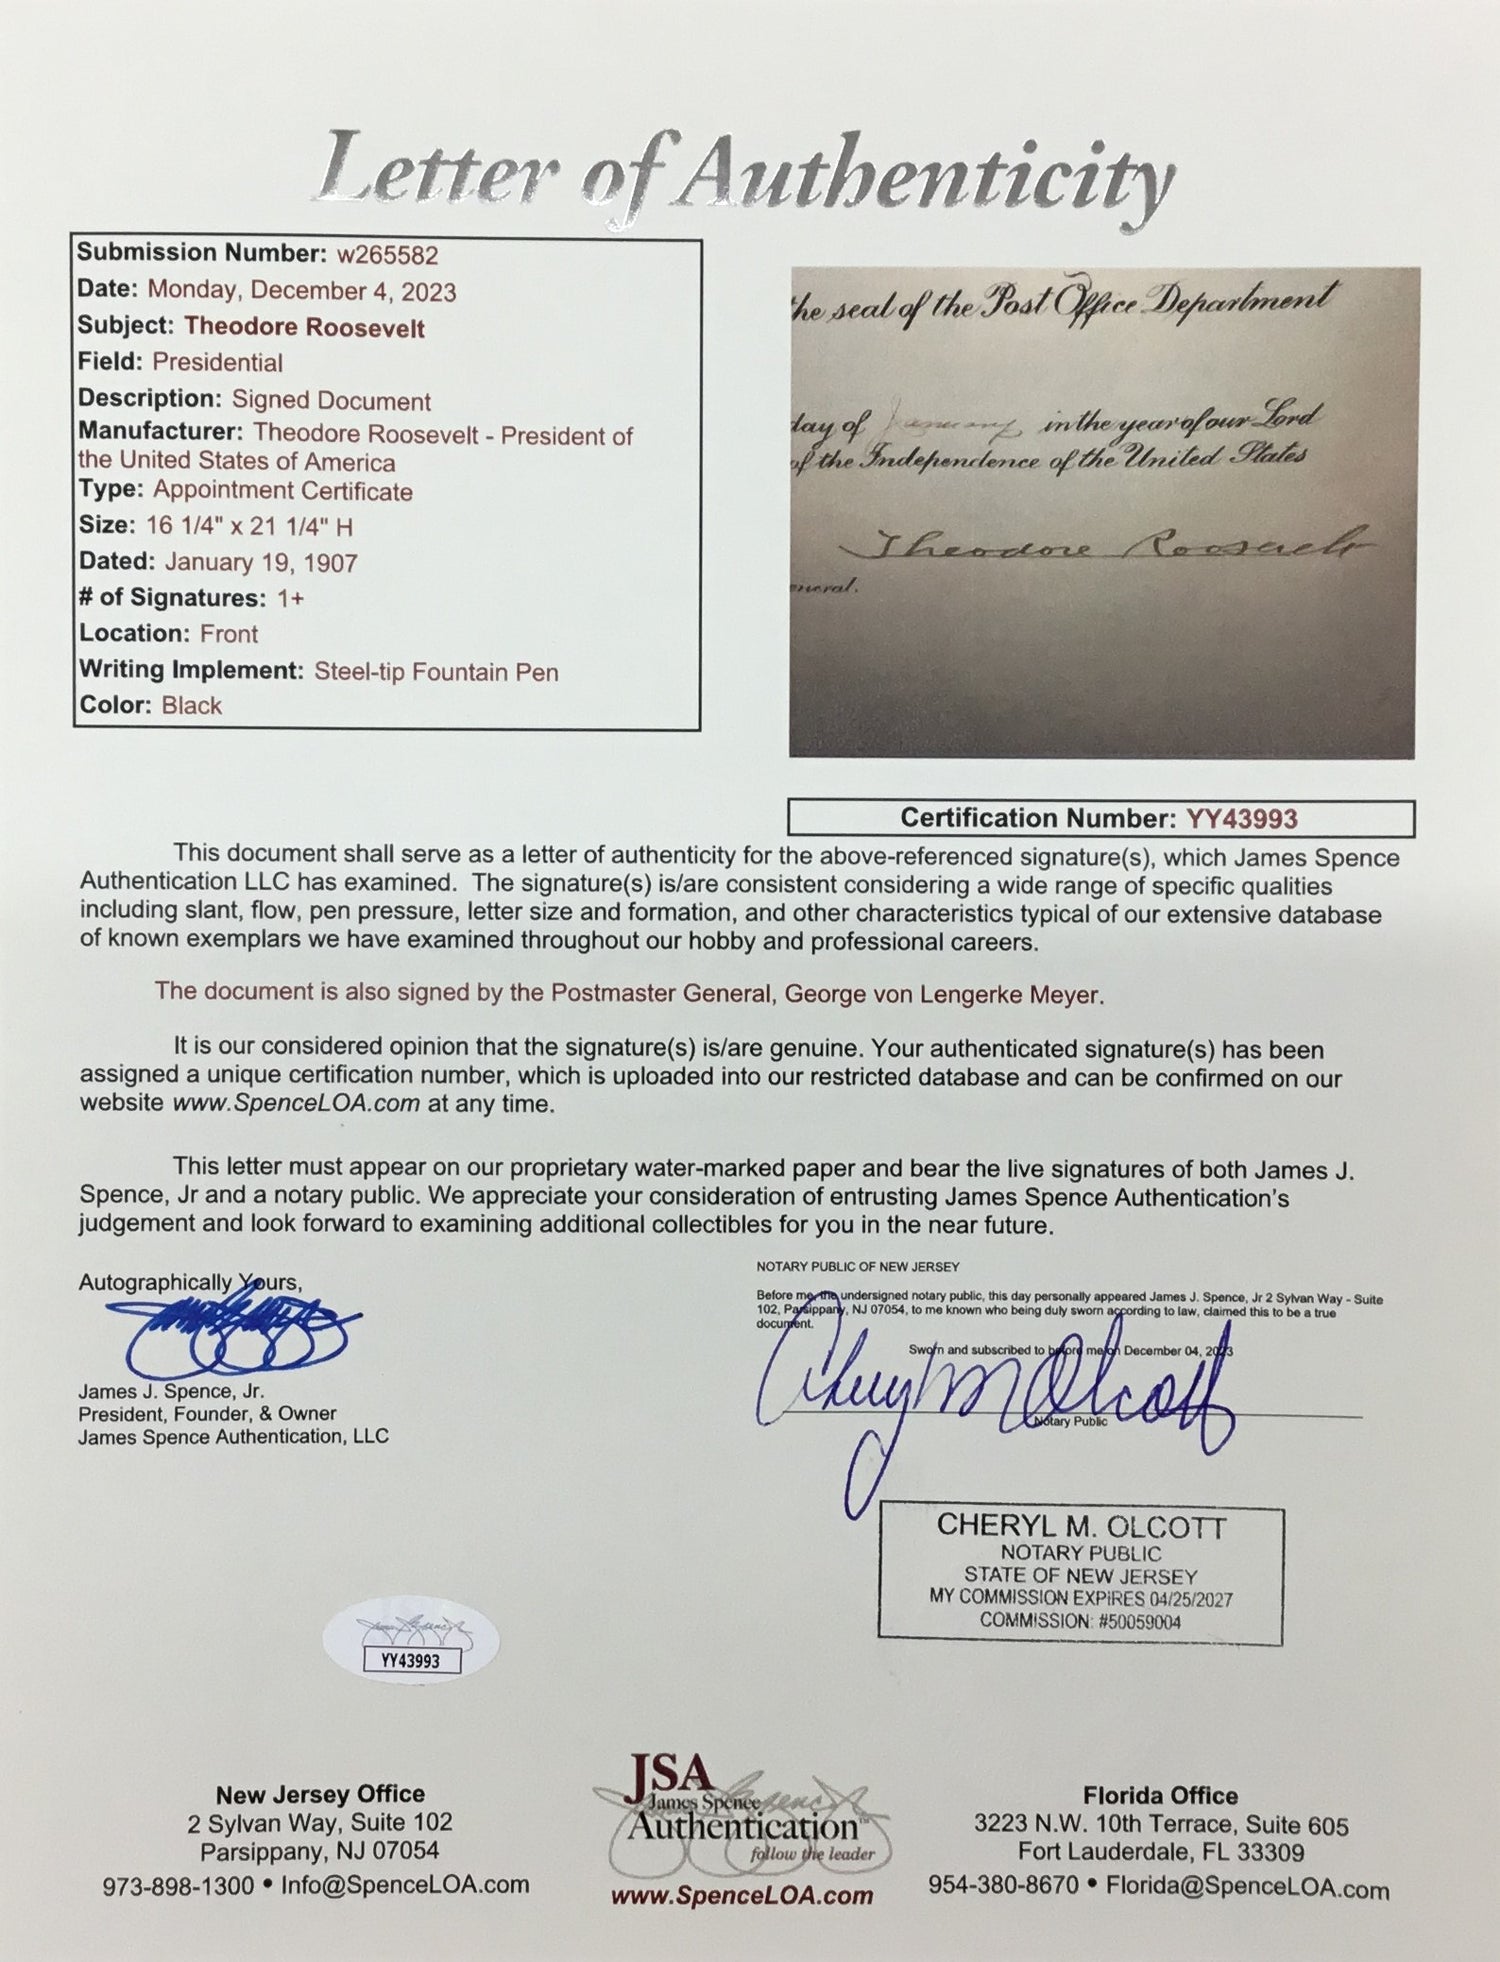 Letter of Authenticity
Submission Number: w265582
Date: Monday, December 4, 2023
Subject: Theodore Roosevelt
Field: Presidential
Description: Signed Document
Manufacturer: Theodore Roosevelt - President of
the United States of America
Type: Appointment Certificate
Size: 16 1/4" x 21 1/4" H
Dated: January 19, 1907
# of Signatures: 1+
Location: Front
Writing Implement: Steel-tip Fountain Pen
Color: Black
the seal of the Post Office Department
day of January in the year of our Lord
of the Independence of the United States
Theodore Roosevelt
eneral.
Certification Number: YY43993
This document shall serve as a letter of authenticity for the above-referenced signature(s), which James Spence
Authentication LLC has examined. The signature(s) is/are consistent considering a wide range of specific qualities
including slant, flow, pen pressure, letter size and formation, and other characteristics typical of our extensive database
of known exemplars we have examined throughout our hobby and professional careers.
The document is also signed by the Postmaster General, George von Lengerke Meyer.
It is our considered opinion that the signature(s) is/are genuine. Your authenticated signature(s) has been
assigned a unique certification number, which is uploaded into our restricted database and can be confirmed on our
website www.SpenceLOA.com at any time.
This letter must appear on our proprietary water-marked paper and bear the live signatures of both James J.
Spence, Jr and a notary public. We appreciate your consideration of entrusting James Spence Authentication's
judgement and look forward to examining additional collectibles for you in the near future.
Autographically Yours,
James J. Spence, Jr.
President, Founder, & Owner
James Spence Authentication, LLC
NOTARY PUBLIC OF NEW JERSEY
Before me, the undersigned notary public, this day personally appeared James J. Spence, Jr 2 Sylvan Way - Suite
102, Parsippany, NJ 07054, to me known who being duly sworn according to law, claimed this to be a true
document.
Sworn and subscribed to before me on December 04, 2023
Cheryl M Olcott
Notary Public
CHERYL M. OLCOTT
NOTARY PUBLIC
STATE OF NEW JERSEY
MY COMMISSION EXPIRES 04/25/2027
COMMISSION: #50059004
YY43993
New Jersey Office
2 Sylvan Way, Suite 102
Parsippany, NJ 07054
973-898-1300 • Info@SpenceLOA.com
JSA
James Spence
Authentication™
follow the leader
www.SpenceLOA.com
Florida Office
3223 N.W. 10th Terrace, Suite 605
Fort Lauderdale, FL 33309
954-380-8670 • Florida@SpenceLOA.com